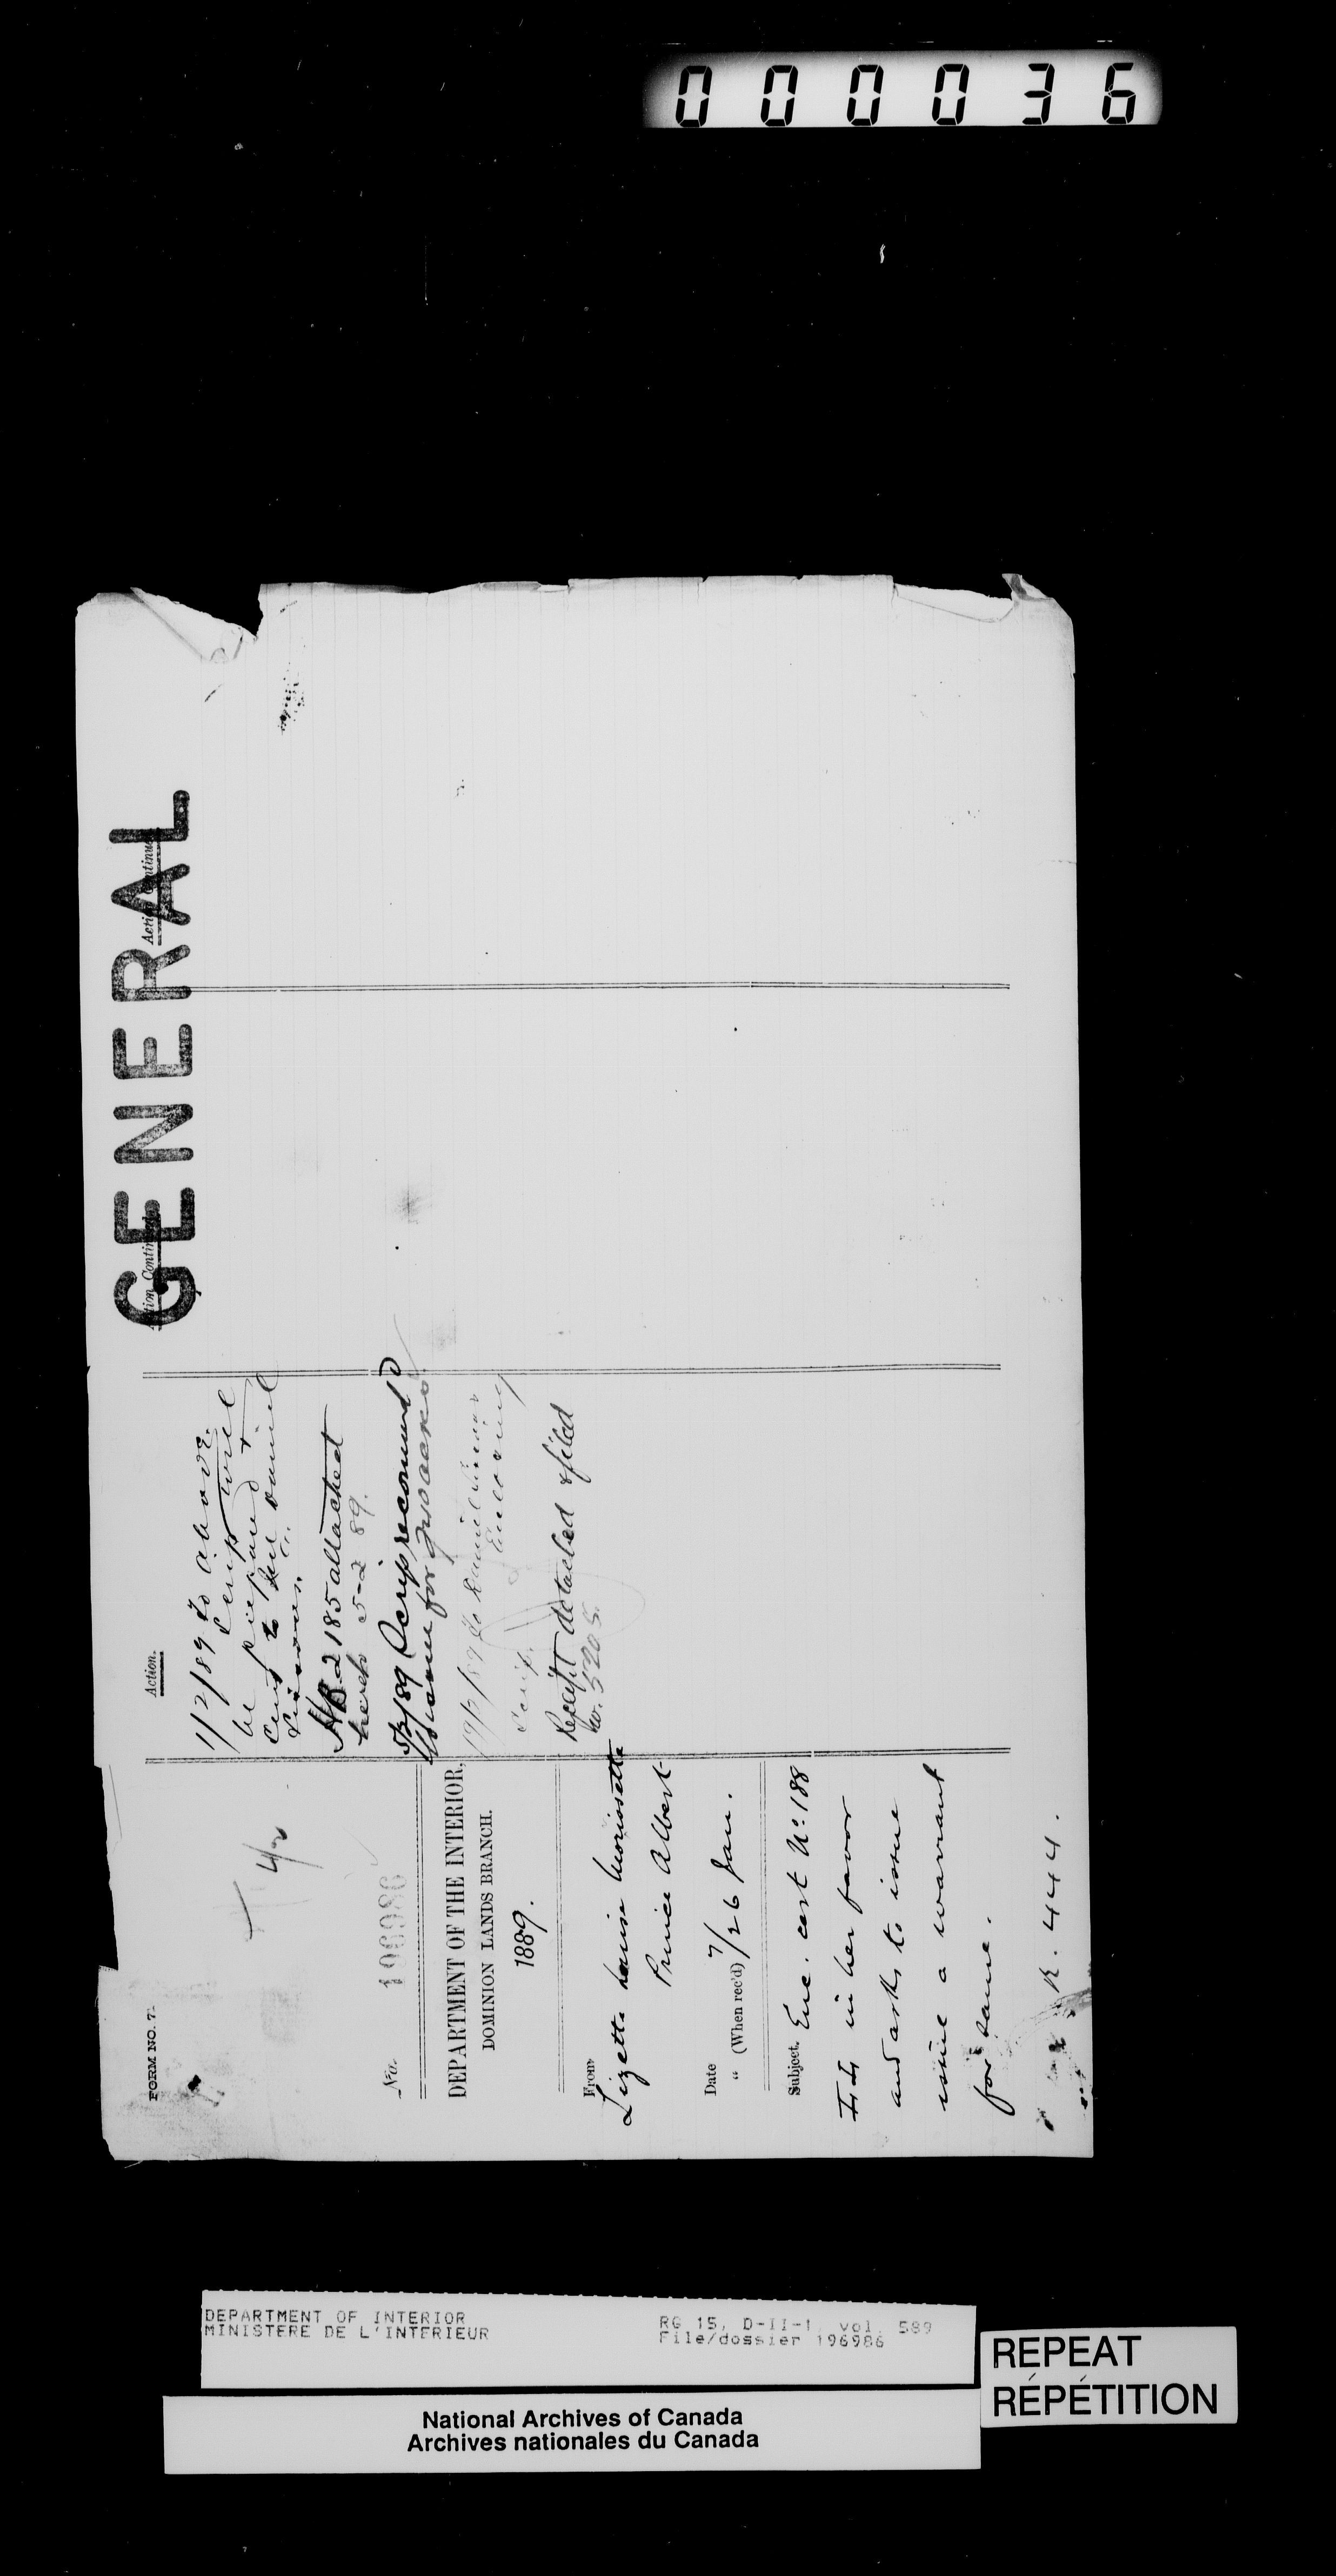 000036
FORM NO. 7.
4/2
No. 196986
DEPARTMENT OF THE INTERIOR,
DOMINION LANDS BRANCH.
1889.
From
Lizette Louise Morissette
Prince Albert
Date 7
" (When rec'd) /26 Jan.
Subject. Enc. cert No 188
in her favor
and asks to issue
issue a warrant
for same.
R. 444.
Action.
1/2/89 To above.
Scrip will
be prepared &
sent to
HB 2185 attached
hereto 5-2 89.
5/2/89 Scrip recommend
for 240 acres
19/2/89 To
Enclosing
Scrip.
Receipt detached & filed
no. 5205.
Action Continued
Action Continued
GENERAL
DEPARTMENT OF INTERIOR
MINISTERE DE L'INTERIEUR
RG 15, D-II-1, vol. 589
File/dossier 196986
REPEAT
RÉPÉTITION
National Archives of Canada
Archives nationales du Canada